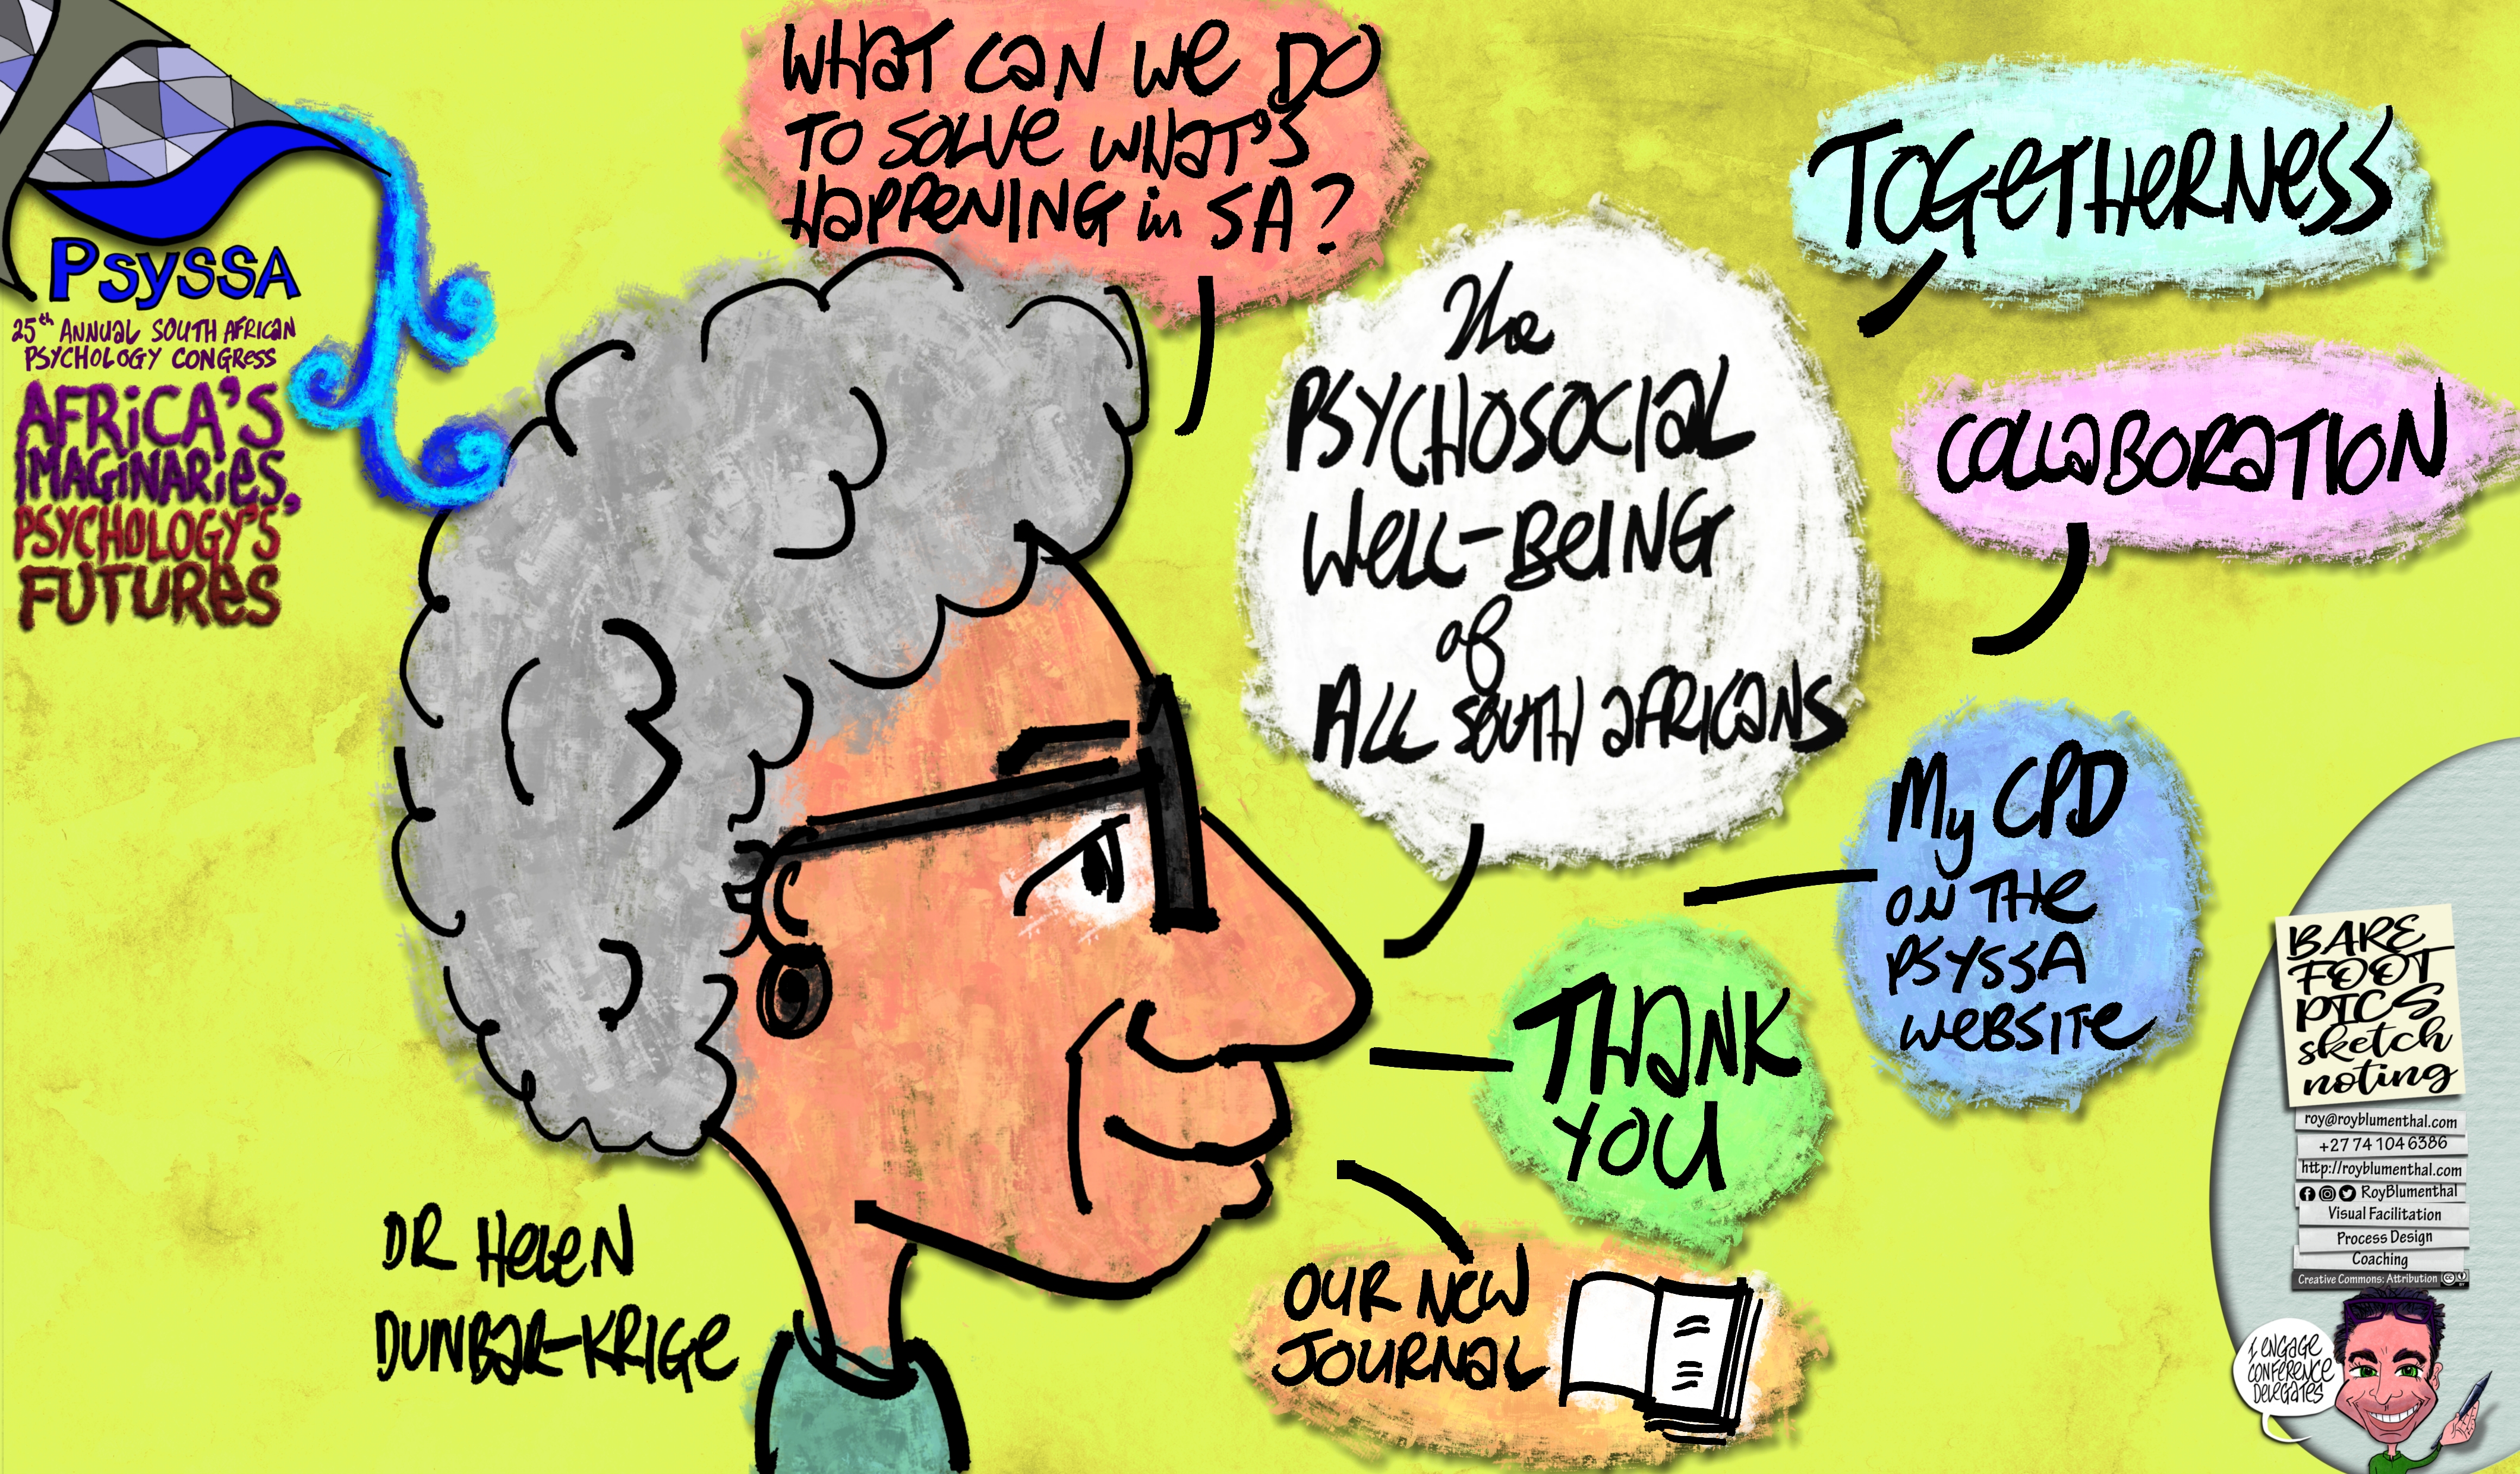 PsySSA
25th ANNUAL SOUTH AFRICAN
PSYCHOLOGY CONGRESS
AFRICA'S
IMAGINARIES,
PSYCHOLOGY'S
FUTURES
WHAT CAN WE DO
TO SOLVE WHAT'S
HAPPENING in SA?
The
PSYCHOSOCIAL
WELL-BEING
of
ALL SOUTH AFRICANS
TOGETHERNESS
COLLABORATION
My CPD
ON THE
PSYSSA
WEBSITE
THANK
YOU
OUR NEW
JOURNAL
DR HELEN
DUNBAR-KRIGE
BARE
FOOT
PICS
sketch
noting
roy@royblumenthal.com
+27 74 104 6386
http://royblumenthal.com
RoyBlumenthal
Visual Facilitation
Process Design
Coaching
Creative Commons: Attribution
I ENGAGE
CONFERENCE
DELEGATES